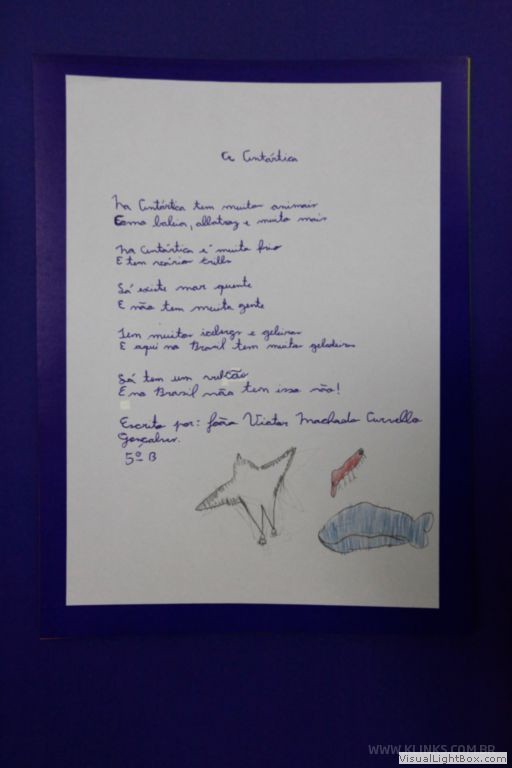 A Antártica
Na Antártica tem muitos animais
Como baleia, albatroz e muito mais
Na Antártica é muito frio
E tem vários trills
Lá existe mar quente
E não tem muita gente
Tem muitos icebergs e geleiras
E aqui no Brasil tem muitas geladeiras
Lá tem um vulcão
E no Brasil não tem isso não!
Escrito por: João Victor Machado Curvello
Gonçalves.
5º B
WWW.KLINKS.COM.BR
VisualLightBox.com